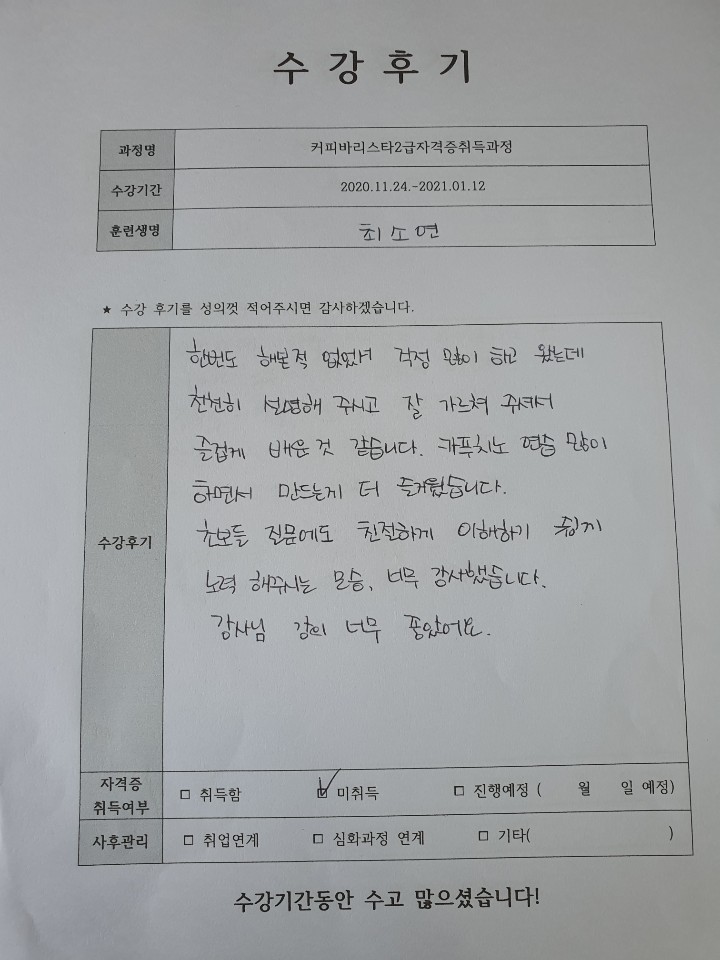 수 강 후 기
과정명 커피바리스타2급자격증취득과정
수강기간 2020.11.24.-2021.01.12
훈련생명 최소연
★ 수강 후기를 성의껏 적어주시면 감사하겠습니다.
수강후기
한번도 해본적 없었서 걱정 많이 하고 왔는데
천천히 설명해 주시고 잘 가르쳐 주셔서
즐겁게 배운것 같습니다. 카푸치노 연습 많이
하면서 만드는게 더 즐거웠습니다.
초보들 질문에도 친절하게 이해하기 쉽게
노력 해주시는 모습, 너무 감사했습니다.
강사님 강의 너무 좋았어요.
자격증 취득여부 □ 취득함 ☑ 미취득 □ 진행예정 ( 월 일 예정)
사후관리 □ 취업연계 □ 심화과정 연계 □ 기타( )
수강기간동안 수고 많으셨습니다!